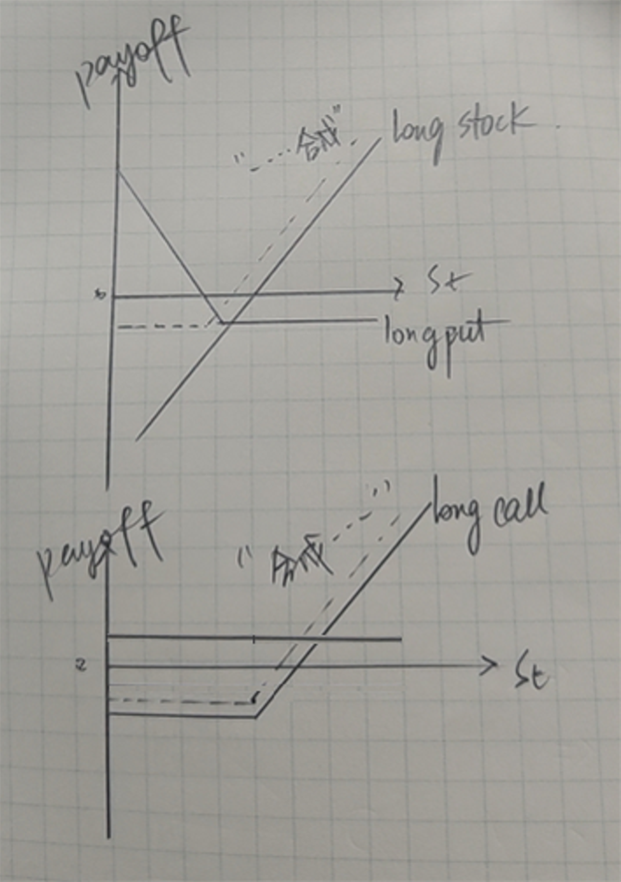 payoff
"----合成"
long stock
St
long put
payoff
"合成---"
long call
St